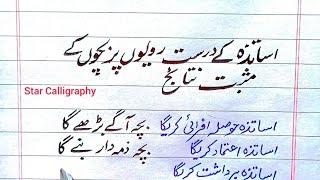 اساتذہ کے درست رویوں پر بچوں کے
مثبت نتائج
Star Calligraphy
اساتذہ حوصلہ افزائی کریگا بچہ آگے بڑھے گا
اساتذہ اعتماد کریگا بچہ ذمہ دار بنے گا
اساتذہ برداشت کریگا